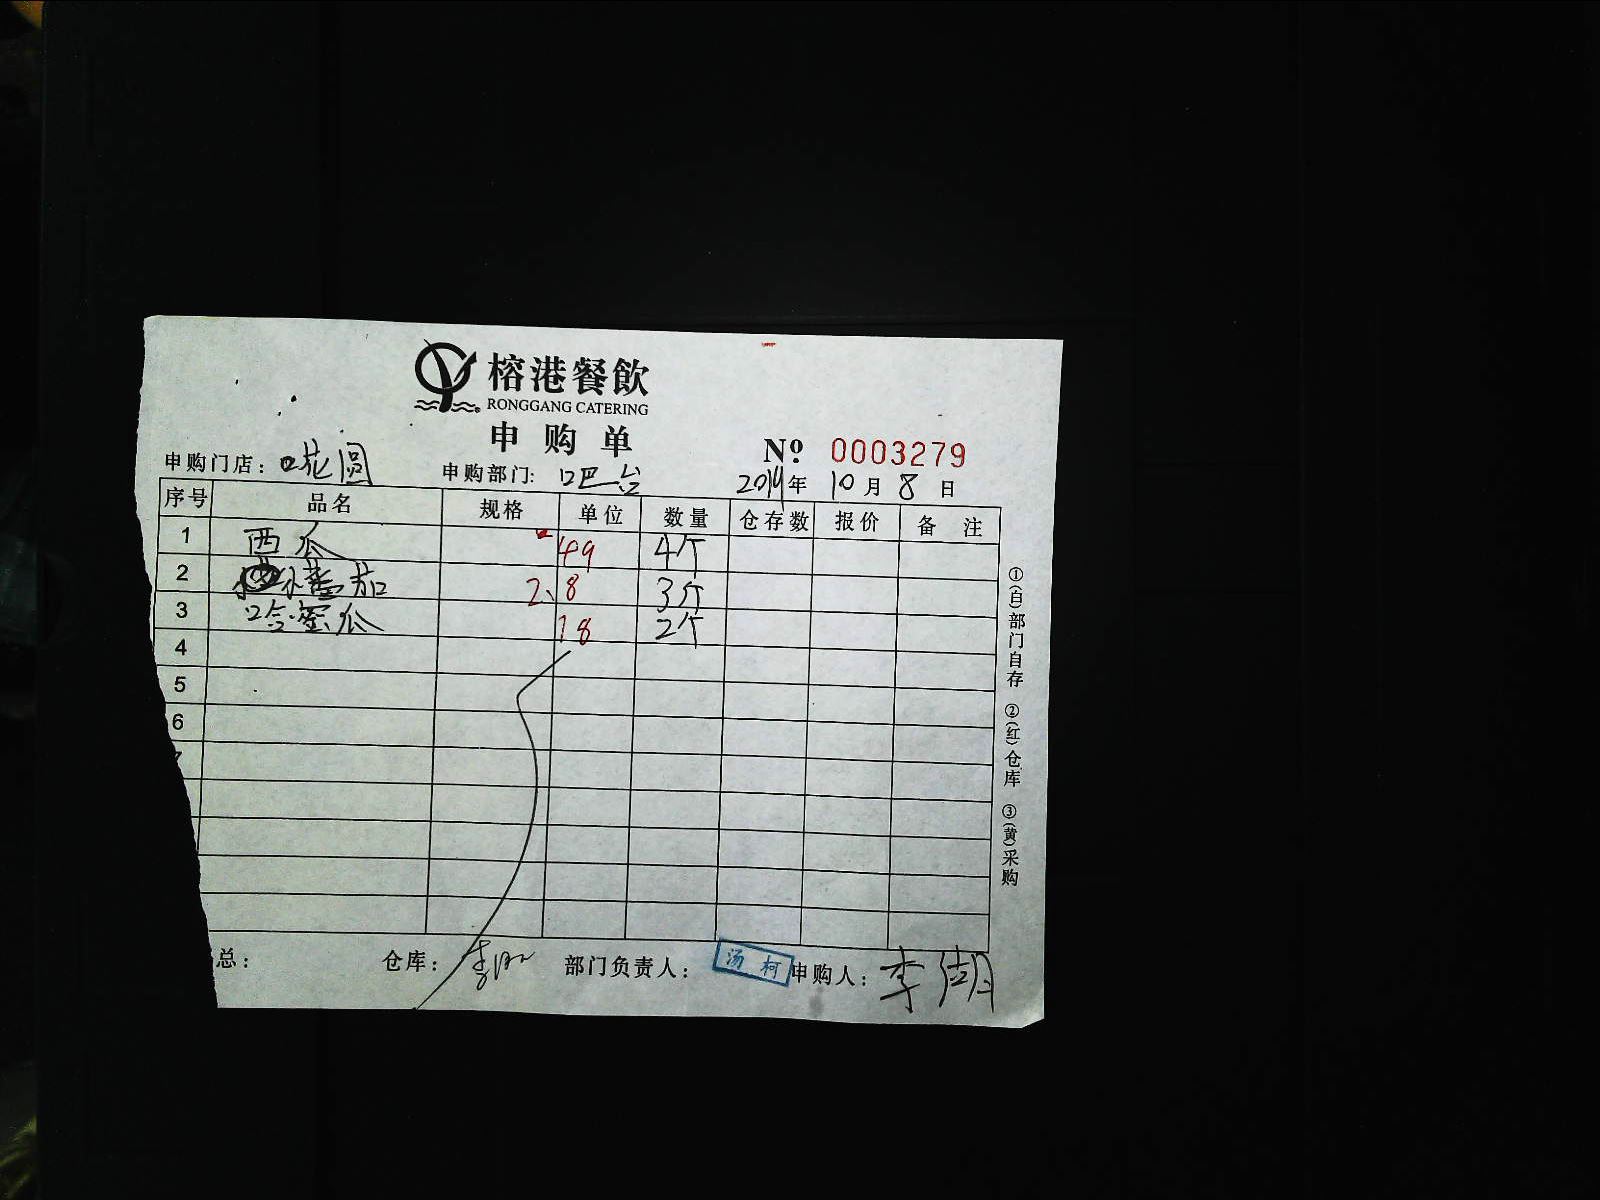 榕港餐飲
RONGGANG CATERING
申购单
№ 0003279
申购门店: 花圆 申购部门: 吧台 2014年 10月 8日
序号 品名 规格 单位 数量 仓存数 报价 备注
1 西瓜 49 4个
2 小番茄 2、8 3斤
3 哈密瓜 18 2个
4
5
6
总: 仓库: 李 部门负责人: 汤柯 申购人: 李
①(白)部门自存 ②(红)仓库 ③(黄)采购